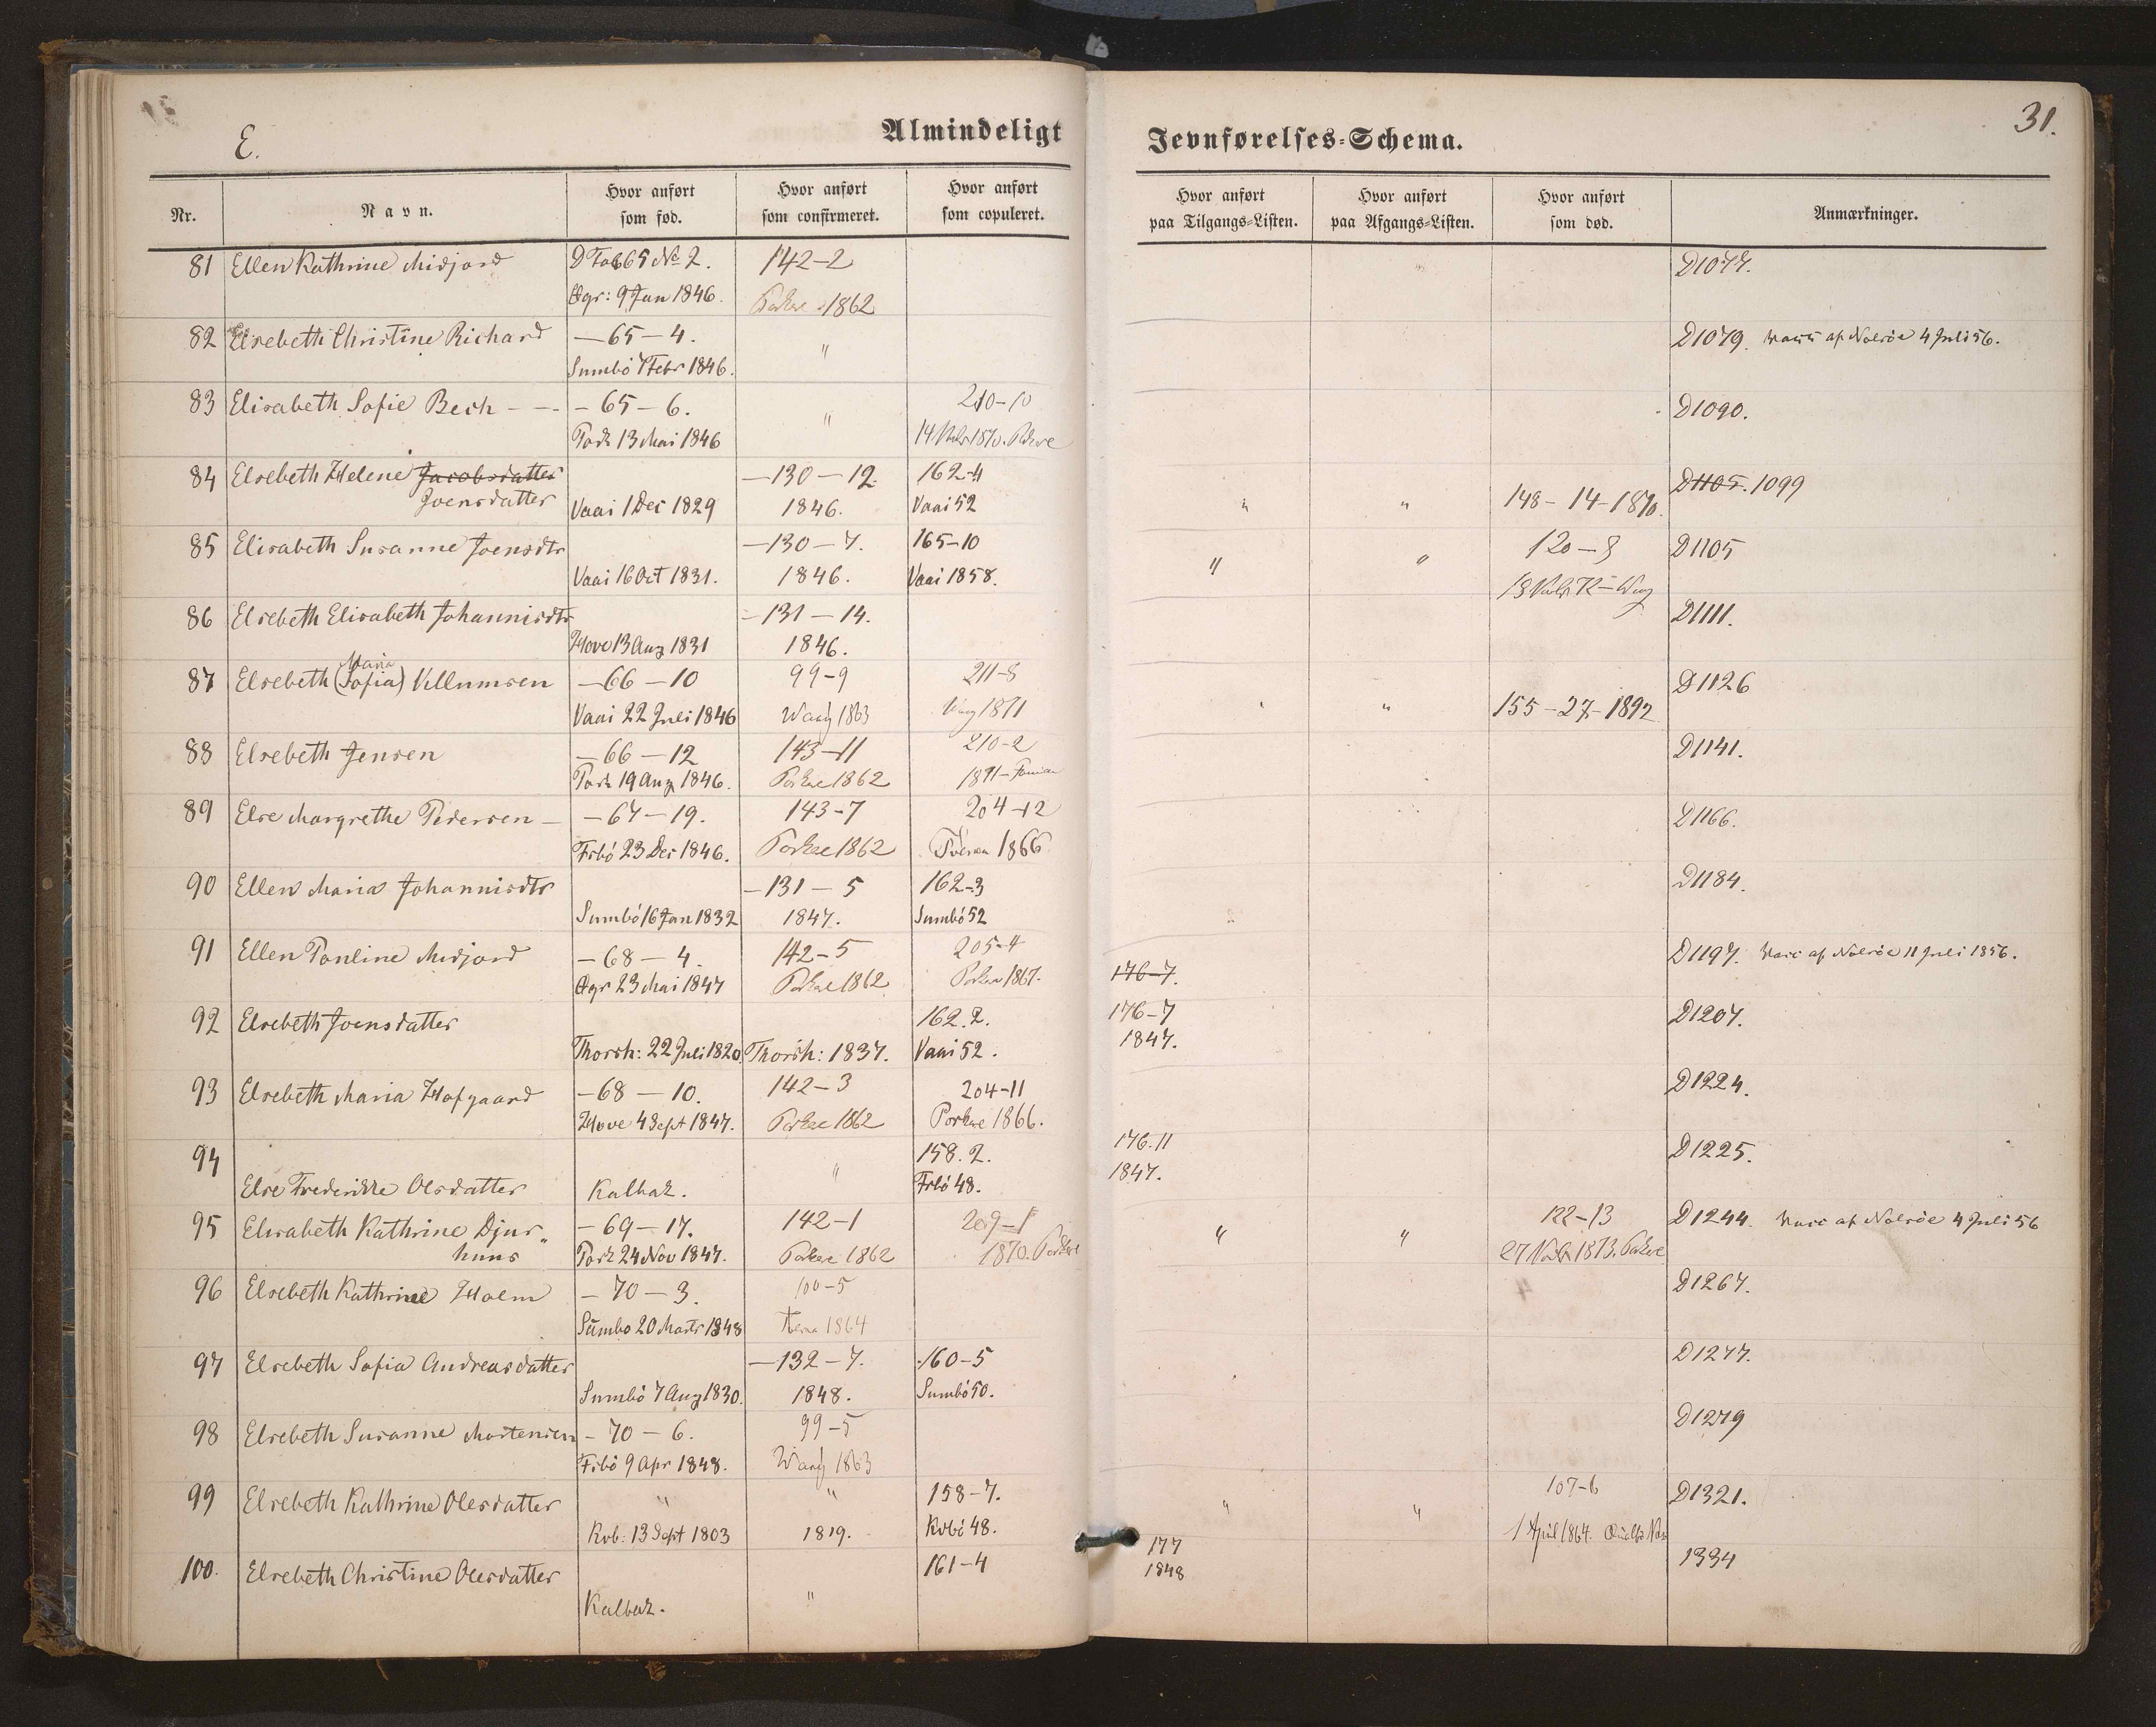 E.
Almindeligt Jevnførelses=Schema.
31.
Nr. Navn. Hvor anført som fød. Hvor anført som confirmeret. Hvor anført som copuleret. Hvor anført paa Tilgangs=Listen. Hvor anført paa Afgangs=Listen. Hvor anført som død. Anmærkninger.
81 Ellen Kathrine Midjord 65 No 2. 142-2 D1077.
Øgr: 9 Jan 1846. Porkere 1862
82 Elsebeth Christine Richard —65—4. " D1079. Vacc af Nolsöe 4 Juli 56.
Sumbö 7 Febr 1846.
83 Elisabeth Sofie Bech - -- - 65 - 6. " 210-10 D1090.
Pork 13 Mai 1846 14 1870. Porkere
84 Elsebeth Helene Jacobsdatter —130—12. 162-4 D1105. 1099
Joensdatter Vaai 1 Dec 1829 1846. Vaai 52 " " 148-14-1870.
85 Elisabeth Susanne Joensdtr —130—7. 165-10 120-8 D1105
Vaai 16 Oct 1831. 1846. Vaai 1858. " "
86 Elsebeth Elisabeth Johannisdtr —131—14. D1111.
Hove 13 Aug 1831 1846.
87 Elsebeth (Sofia) Maria Villumsen —66—10 99-9 211-8 D1126
Vaai 22 Juli 1846 Waag 1863 Waag 1871 " " 155-27-1892
88 Elsebeth Jensen —66—12 143-11 210-2 D1141.
Pork 19 Aug 1846. Porkere 1862 1871
89 Else Margrethe Pedersen — —67—19. 143-7 204-12 D1166.
Frbö 23 Dec 1846. Porkere 1862 Tveraa 1866
90 Ellen Maria Johannisdtr —131—5 162-3 D1184.
Sumbö 16 Jan 1832 1847. Sumbö 52
91 Ellen Pauline Midjord —68—4. 142-5 205-4 D1197. Vacc af Nolsöe 11 Juli 1856.
Øgr 23 Mai 1847 Porkere 1862 Porkere 1867. 176-7.
92 Elsebeth Joensdatter 162.2. 176-7 D1207.
Thorsh: 22 Juli 1820. Thorsh: 1837. Vaai 52. 1847.
93 Elsebeth Maria Hofgaard —68—10. 142-3 204-11 D1224.
Hove 4 Sept 1847. Porkere 1862 Porkere 1866.
94 " 158.2. 176.11 D1225.
Else Frederikke Olesdatter Kalbak. Frbö 48. 1847.
95 Elisabeth Kathrine Djur- —69—17. 142-1 209-1 122-13 D1244. Vacc af Nolsöe 4 Juli 56
huus Pork 24 Nov 1847. Porkere 1862 1870. Porkere " " 27 1873. Porkere
96 Elsebeth Kathrine Holm —70—3. 100-5 D1267.
Sumbo 20 Marts 1848 1864
97 Elsebeth Sofia Andreasdatter —132—7. 160-5 D1277.
Sumbö 7 Aug 1830. 1848. Sumbö 50.
98 Elsebeth Susanne Mortensen —70—6. 99-5 D1279
Frbö 9 Apr 1848. Waag 1863
99 Elsebeth Kathrine Olesdatter " " 158-7. " " 107-6 D1321.
Kvb: 13 Sept 1803 1819. Kvbö 48. 1 April 1864.
100. Elsebeth Christine Olesdatter 161-4 177 1334
Kalbak. " 1848